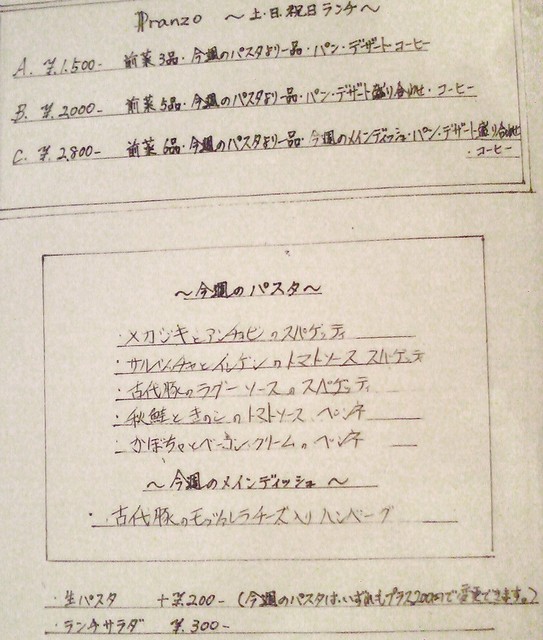 Pranzo 〜土・日・祝日ランチ〜
A. ¥1.500- 前菜3品・今週のパスタより一品・パン・デザート・コーヒー
B. ¥2000- 前菜5品・今週のパスタより一品・パン・デザート盛り合わせ・コーヒー
C. ¥2,800- 前菜6品・今週のパスタより一品・今週のメインディッシュ・パン・デザート盛り合わせ
・コーヒー
〜今週のパスタ〜
・メカジキとアンチョビのスパゲッティ
・サルシッチャとインゲンのトマトソース スパゲッティ
・古代豚のラグーソースのスパゲッティ
・秋鮭ときのこのトマトソース ペンネ
・かぼちゃとベーコンクリームのペンネ
〜今週のメインディッシュ〜
・古代豚のモッツァレラチーズ入りハンバーグ
・生パスタ +¥200- (今週のパスタは、いずれもプラス200円で変更できます。)
・ランチサラダ ¥300-